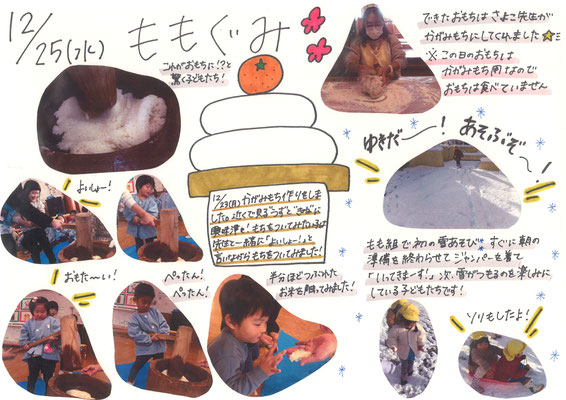 12/25(水)
ももぐみ
これがおもちに!?と
驚く子どもたち!
できたおもちは さよこ先生が
かがみもちにしてくれました
※ この日のおもちは
かがみもち用なので
おもちは食べていません
ゆきだ〜!
あそぶぞ〜!
よいしょー!
12/23(月)かがみもち作りをしま
した。近くで見る"うす"と"きね"に
興味津々!もちをついてみたい子は
先生と一緒に「よいしょー!」と
言いながらもちをついてみました!
おもた〜い!
ぺったん!
ぺったん!
半分ほどつぶれた
お米を触ってみました!
もも組で初の雪あそび すぐに朝の
準備を終わらせて ジャンパーを着て
「いってきまーす!」次、雪がつもるのを楽しみに
している子どもたちです!
ソリもしたよ!